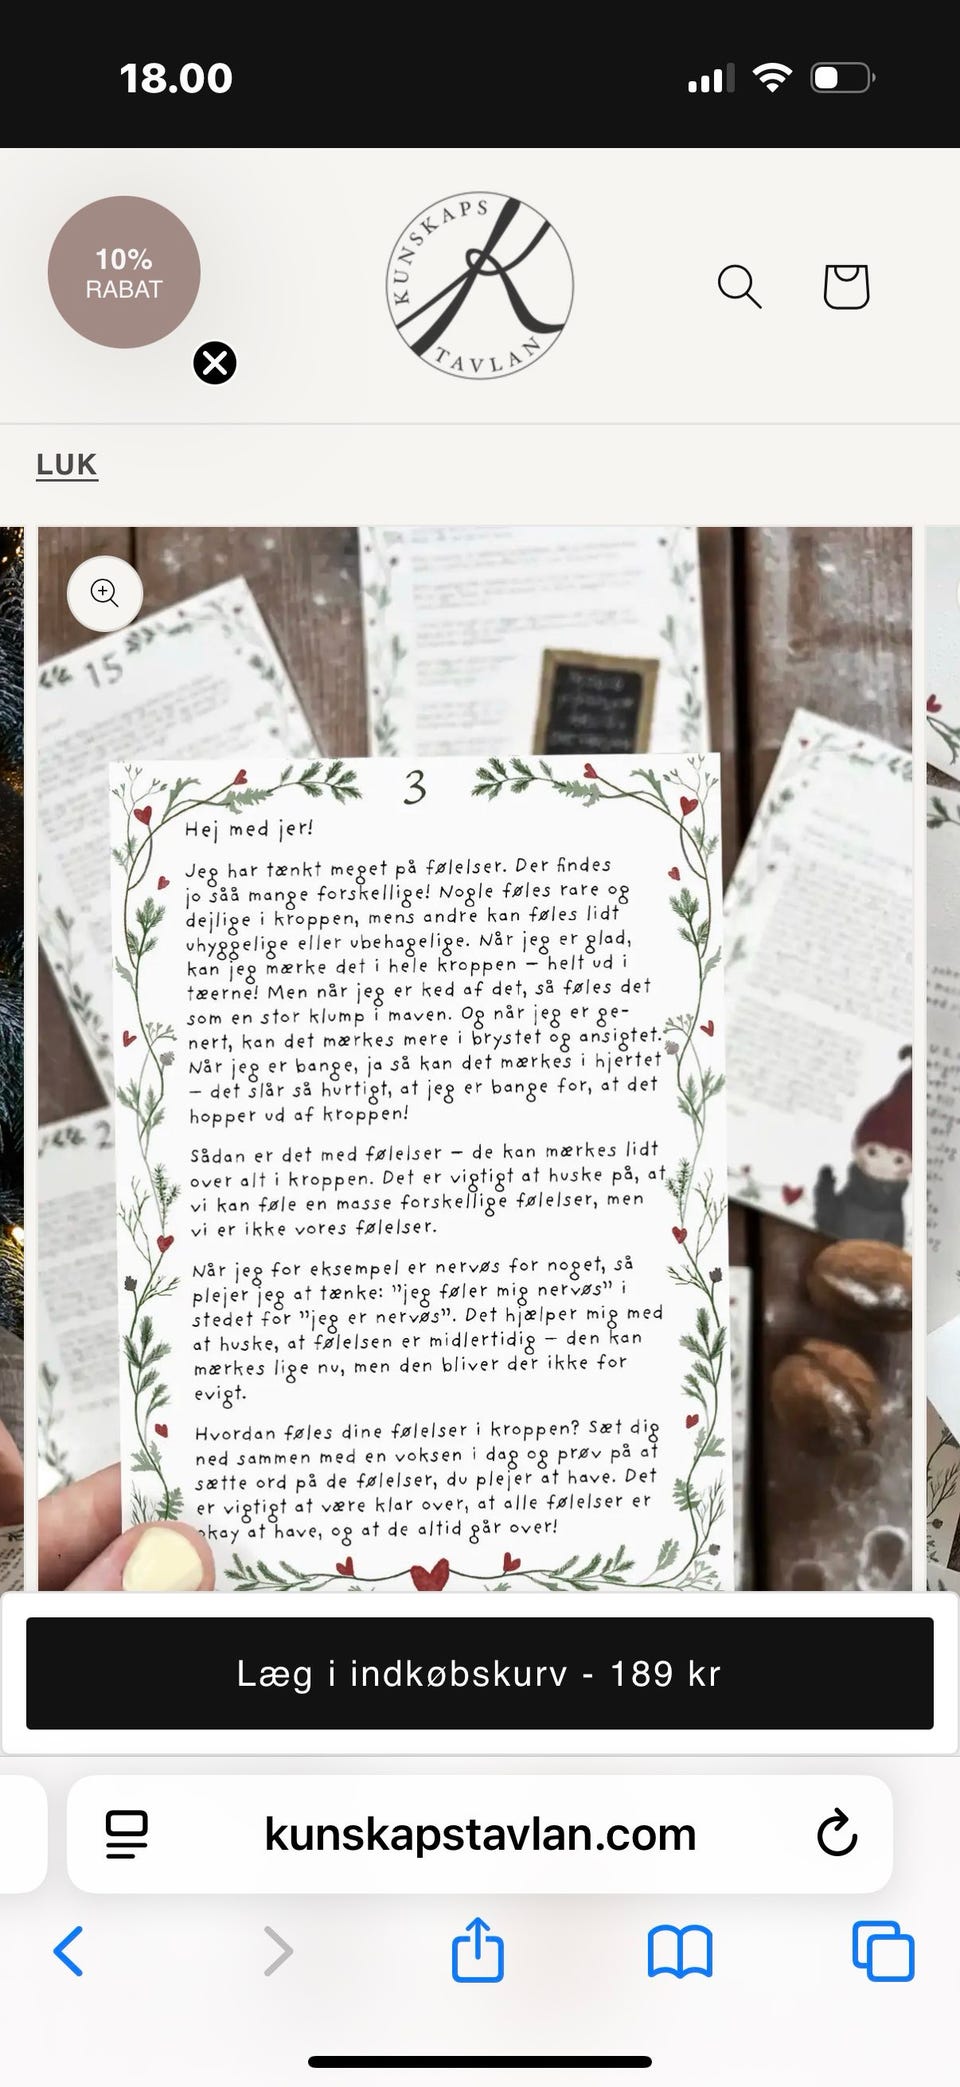 18.00
10%
RABAT
KUNSKAPS
TAVLAN
LUK
15
3
Hej med jer!
Jeg har tænkt meget på følelser. Der findes
jo såå mange forskellige! Nogle føles rare og
dejlige i kroppen, mens andre kan føles lidt
uhyggelige eller ubehagelige. Når jeg er glad,
kan jeg mærke det i hele kroppen – helt ud i
tæerne! Men når jeg er ked af det, så føles det
som en stor klump i maven. Og når jeg er ge-
nert, kan det mærkes mere i brystet og ansigtet.
Når jeg er bange, ja så kan det mærkes i hjertet
– det slår så hurtigt, at jeg er bange for, at det
hopper ud af kroppen!
Sådan er det med følelser – de kan mærkes lidt
over alt i kroppen. Det er vigtigt at huske på, at
vi kan føle en masse forskellige følelser, men
vi er ikke vores følelser.
Når jeg for eksempel er nervøs for noget, så
plejer jeg at tænke: "jeg føler mig nervøs" i
stedet for "jeg er nervøs". Det hjælper mig med
at huske, at følelsen er midlertidig – den kan
mærkes lige nu, men den bliver der ikke for
evigt.
Hvordan føles dine følelser i kroppen? Sæt dig
ned sammen med en voksen i dag og prøv på at
sætte ord på de følelser, du plejer at have. Det
er vigtigt at være klar over, at alle følelser er
okay at have, og at de altid går over!
Læg i indkøbskurv - 189 kr
kunskapstavlan.com